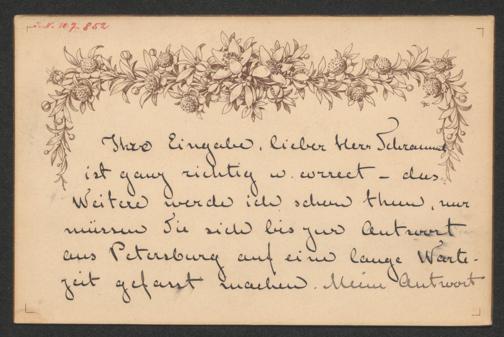 J.N. 117.852
Ihre Eingabe, lieber Herr Schramm
ist ganz richtig u. correct – das
Weitere werde ich schon thun, nur
müssen Sie sich bis zur Antwort
aus Petersburg auf eine lange Warte-
zeit gefasst machen. Meine Antwort